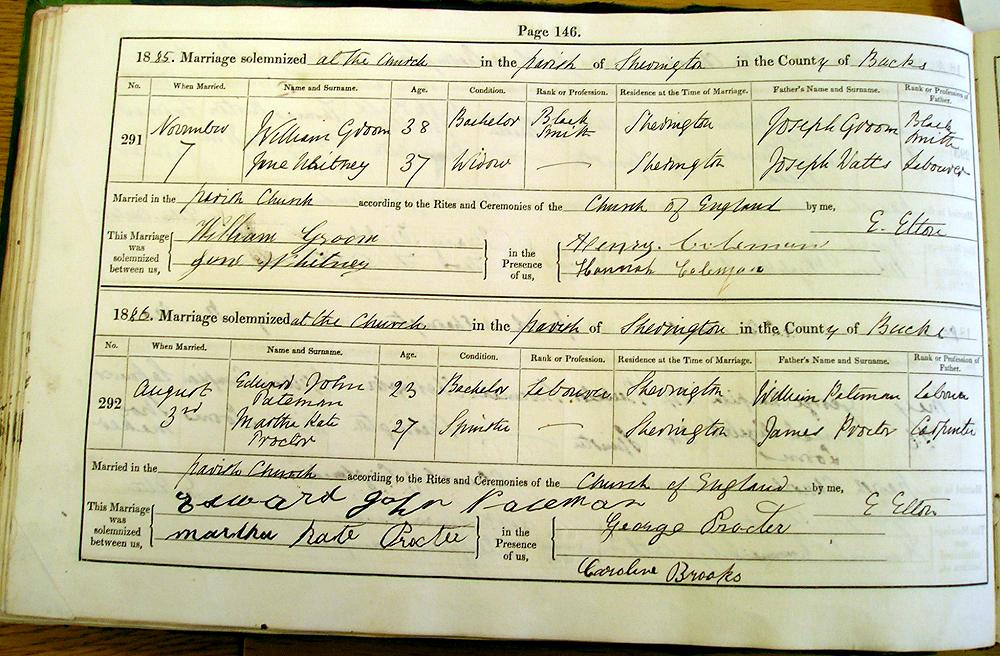 Page 146.
1885. Marriage solemnized at the Church in the parish of Sherington in the County of Bucks
No. When Married. Name and Surname. Age. Condition. Rank or Profession. Residence at the Time of Marriage. Father's Name and Surname. Rank or Profession of Father.
291 November 7 William Groom 38 Bachelor Black Smith Sherington Joseph Groom Black Smith
Jane Whitney 37 Widow — Sherington Joseph Watts Labourer
Married in the parish Church according to the Rites and Ceremonies of the Church of England by me,
E. Elton
This Marriage was solemnized between us,
William Groom
Jane Whitney
in the Presence of us,
Henry Coleman
Hannah Coleman
1886. Marriage solemnized at the Church in the parish of Sherington in the County of Bucks
No. When Married. Name and Surname. Age. Condition. Rank or Profession. Residence at the Time of Marriage. Father's Name and Surname. Rank or Profession of Father.
292 August 3rd Edward John Pateman 23 Bachelor Labourer Sherington William Pateman Labourer
Martha Kate Proctor 27 Spinster — Sherington James Proctor Carpenter
Married in the parish Church according to the Rites and Ceremonies of the Church of England by me,
E Elton
This Marriage was solemnized between us,
Edward John Pateman
martha Kate Procter
in the Presence of us,
George Procter
Caroline Brooks